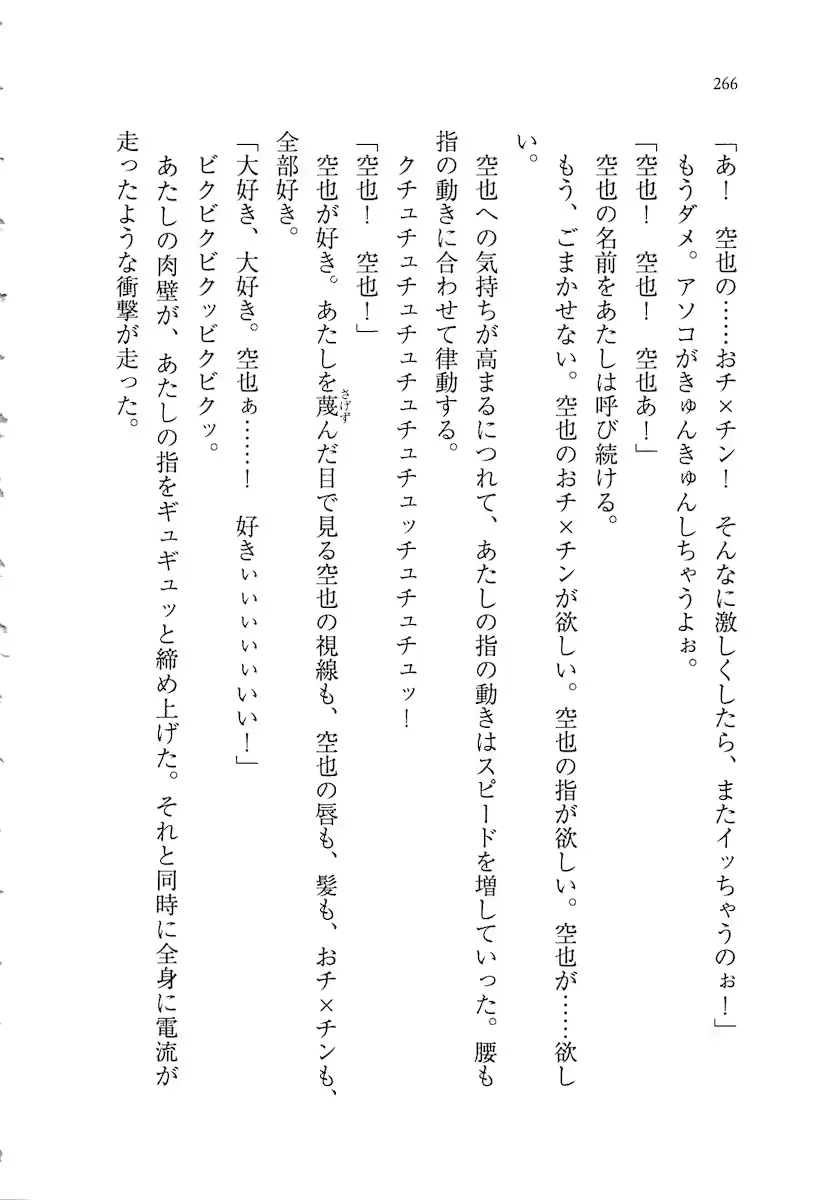 266
「あ！　空也の……おチ×チン！　そんなに激しくしたら、またイッちゃうのぉ！」
もうダメ。アソコがきゅんきゅんしちゃうよぉ。
「空也！　空也！　空也あ！」
空也の名前をあたしは呼び続ける。
もう、ごまかせない。空也のおチ×チンが欲しい。空也の指が欲しい。空也が……欲し
い。
空也への気持ちが高まるにつれて、あたしの指の動きはスピードを増していった。腰も
指の動きに合わせて律動する。
クチュチュチュチュチュチュチュッチュチュチュッ！
「空也！　空也！」
空也が好き。あたしを蔑んだ目で見る空也の視線も、空也の唇も、髪も、おチ×チンも、
さげず
全部好き。
「大好き、大好き。空也ぁ……！　好きぃぃぃぃぃいい！」
ビクビクビクッビクビクッ。
あたしの肉壁が、あたしの指をギュギュッと締め上げた。それと同時に全身に電流が
走ったような衝撃が走った。